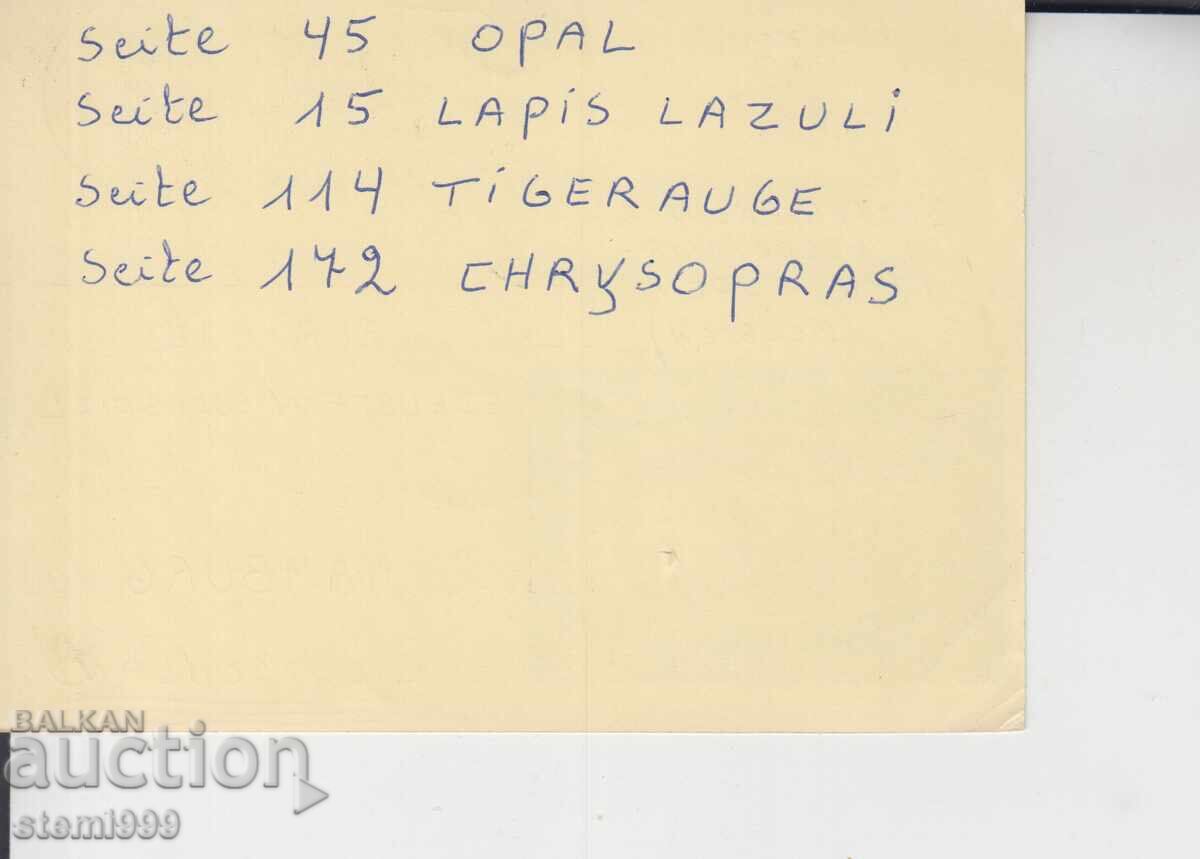 Seite 45 OPAL
Seite 15 LAPiS LAZULi
Seite 114 TiGERAUGE
Seite 172 CHRYSOPRAS
BALKAN
auction
stemi999